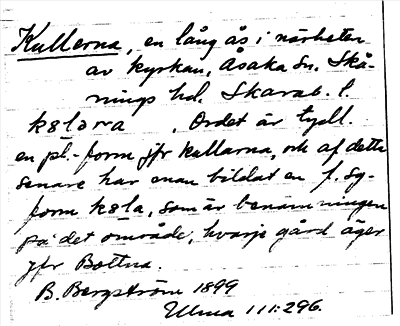 Kullerna, en lång ås i närheten
av kyrkan, Åsaka sn. Skå-
nings hd. Skarab. l.
kɞlɞrna, Ordet är tydl.
en pl.-form jfr Kullarna, ock af detta
senare har man bildat en f. sg-
form kɞla, som är benämningen
på det område, hvarje gård äger
jfr Bottna.
B. Bergström 1899
Ulma 111:296.